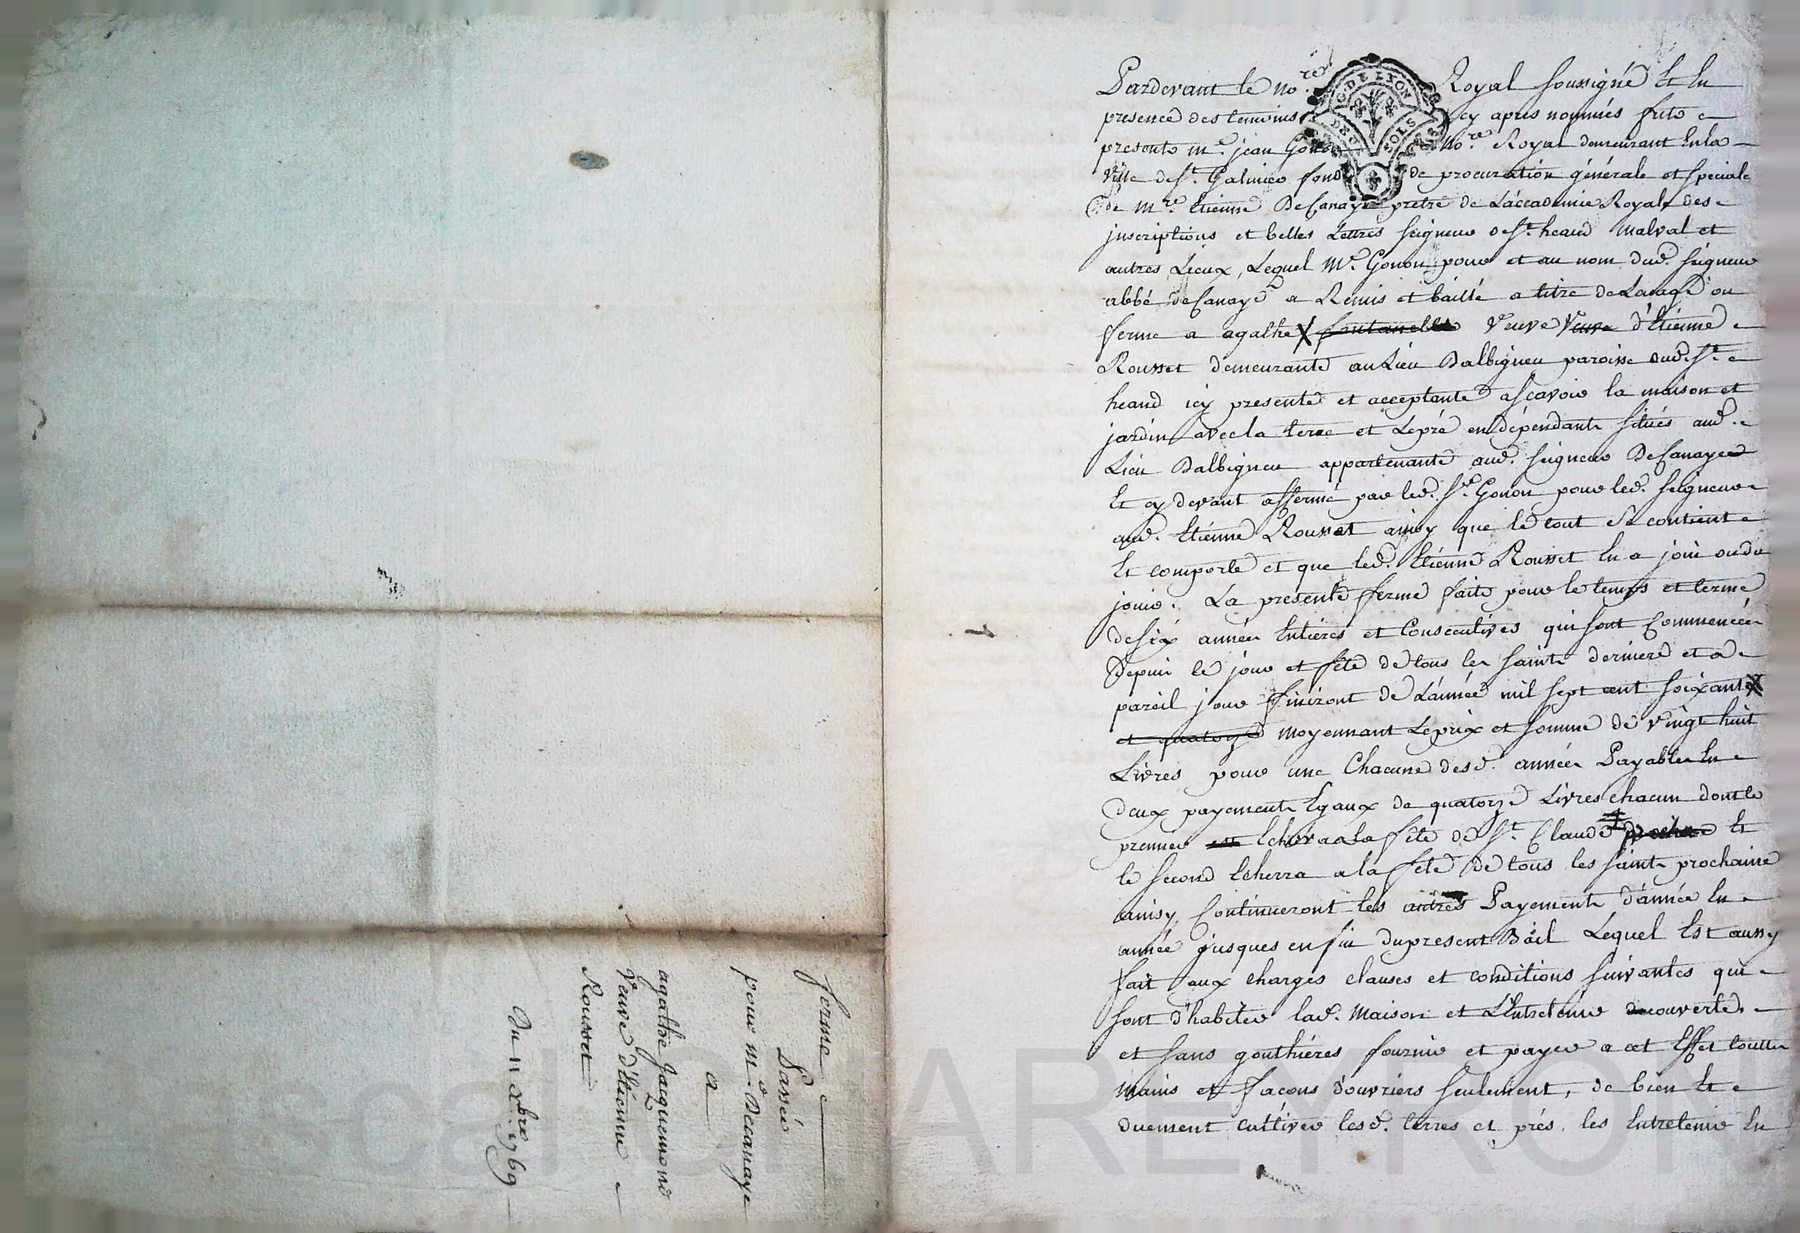 ferme
Passée
pour mr. Decanaye
a
agathe Jaquemond
veuve d'Etienne
Rousset
Du 11 xbre. 1769
Pardevant le nore. Royal soussigné Et En
presence des temoins cy apres nommés futs
presents me. jean Gonon nore. Royal demeurant En la
ville de st. Galmier fondé de procuration générale et speciale
de mre. Etienne DeCanaye pretre de L'accademie Royale des
jnscriptions et belles Lettres seigneur de st. heand malval et
autres Lieux, Lequel Me. Gonon pour et au nom dud. seigneur
abbé deCanaye a Remis et baillé a titre de Louage ou
ferme a agathe fontanelle veuve veuve d'Etienne
Rousset demeurante au Lieu Dalbigneu paroisse dud. st.
heand icy presente et acceptante ascavoir la maison et
jardin avec la terre et Le pré en dépendants situés aud.
Lieu Dalbigneu appartenants aud. seigneur DeCanaye
Et cy devant affermé par led. sr. Gonon pour led. seigneur
aud. Etienne Rousset ainsy que le tout se contient
Et comporte et que led. Etienne Rousset En a joüi ou du
jouir. La presente ferme faite pour le temps et terme
de six années Entieres et Consecutives qui sont Commencées
Depuis le jour et fête de tous les saints derniere et a
pareil jour finiront de L'année mil sept cent soixante
et quatorze moyennant Le prix et somme de vingt huit
Livres pour une Chacune desd. années Payables En
deux payements Egaux de quatorze Livres chacun dont le
premier Echerra a la fête de st. Claude prochaine Et
le second Echerra a la fête de tous les saints prochaine
ainsy Continueront les autres Payements d'année En
année jusques en fin du present Bail Lequel Est aussy
fait aux charges clauses et conditions suivantes qui
sont d'habiter lad. maison et L'Entretenir de couverts
et sans gouthiéres fournir et payer a cet Effet touttes
mains et façons d'ouvriers seulement, de bien Et
duement cultiver lesd. terres et prés, les Entretenir En
G. DE LYON
DE 2 SOLS